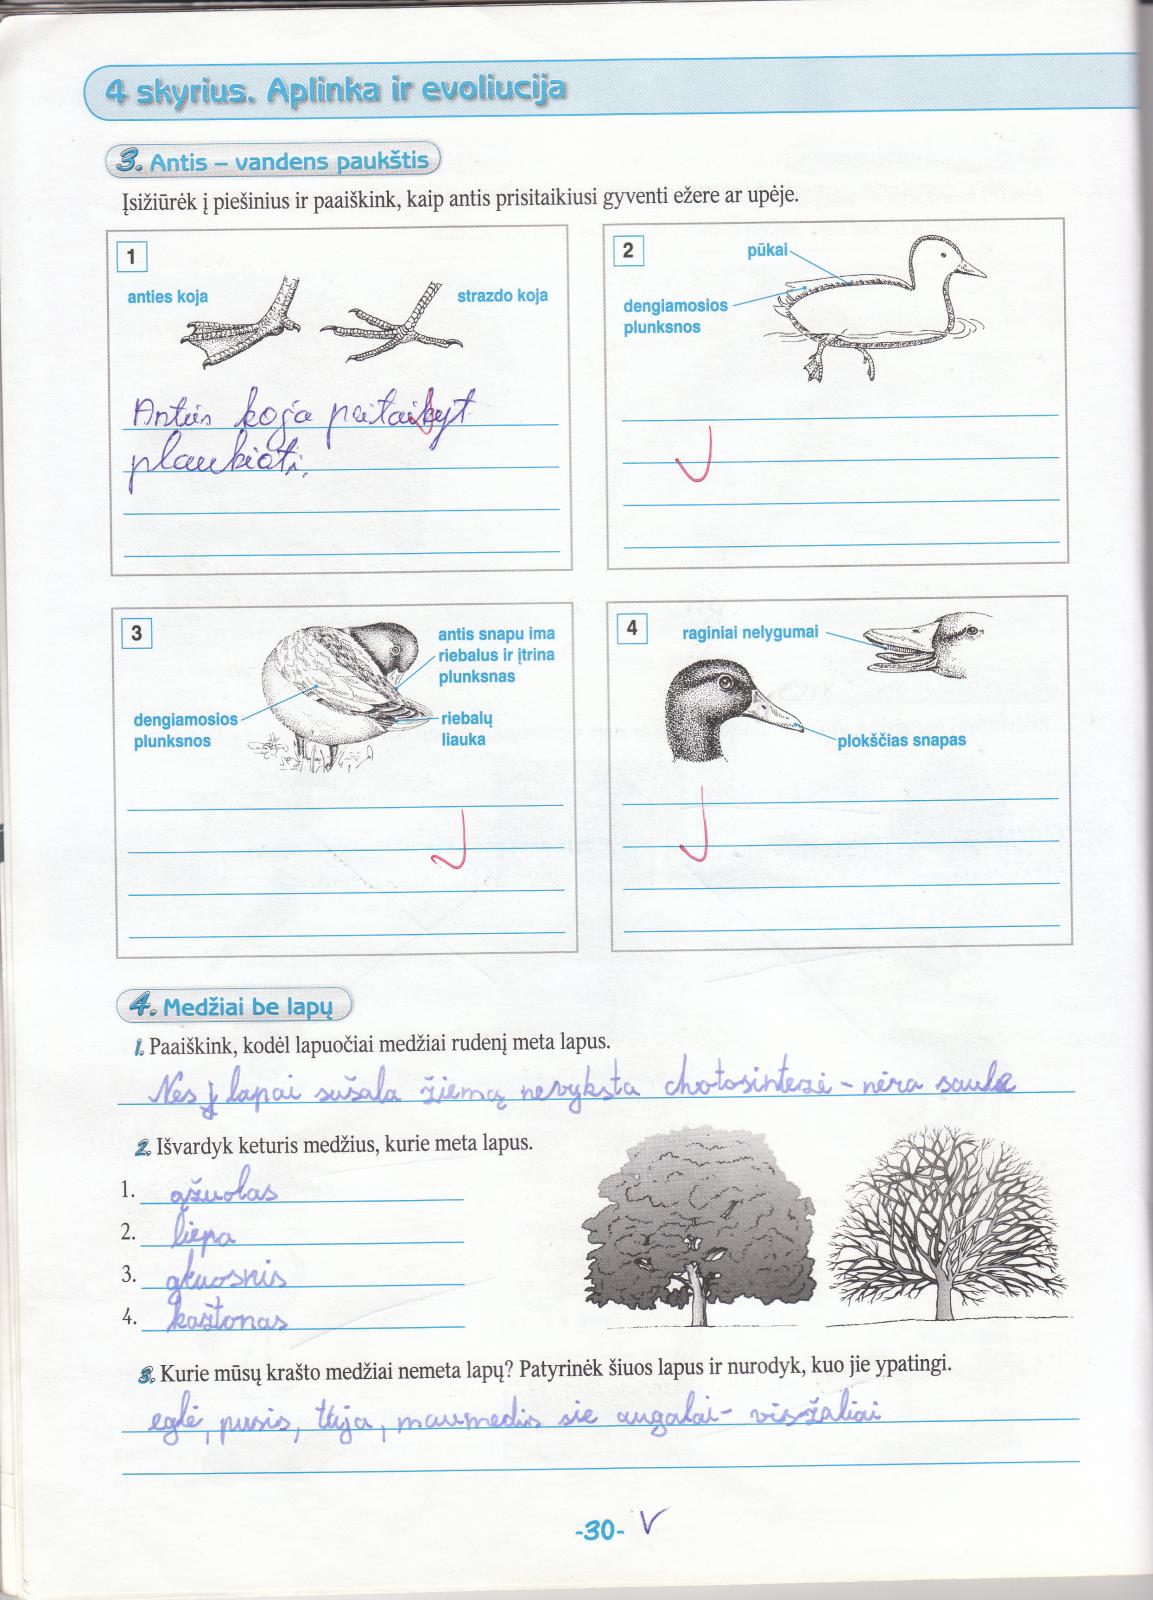 4 skyrius. Aplinka ir evoliucija
3. Antis – vandens paukštis
Įsižiūrėk į piešinius ir paaiškink, kaip antis prisitaikiusi gyventi ežere ar upėje.
1
anties koja
strazdo koja
Anties koja pritaikyt
plaukioti.
2
pūkai
dengiamosios
plunksnos
3
antis snapu ima
riebalus ir įtrina
plunksnas
dengiamosios
plunksnos
riebalų
liauka
4
raginiai nelygumai
plokščias snapas
4. Medžiai be lapų
1. Paaiškink, kodėl lapuočiai medžiai rudenį meta lapus.
Nes jų lapai sušala žiemą nevyksta chotosintezė – nėra saulė
2. Išvardyk keturis medžius, kurie meta lapus.
1. ąžuolas
2. liepa
3. gluosnis
4. kaštonas
3. Kurie mūsų krašto medžiai nemeta lapų? Patyrinėk šiuos lapus ir nurodyk, kuo jie ypatingi.
eglė, pusis, tuja, maumedis sie augalai – visžaliai
-30-